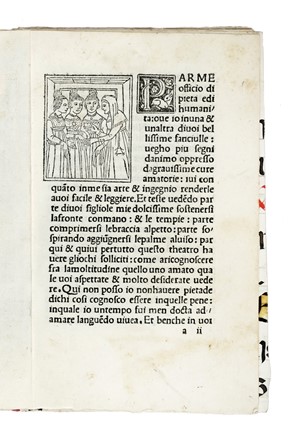 PAR ME
officio di
pieta edi
humani
ta: oue io inuna &
unaltra diuoi bel
lissime fanciulle:
uegho piu segni
danimo oppresso
dagrauissime cure
amatorie: iui con
quāto inme sia arte & ingegnio renderle
auoi facile & leggiere. Et teste uedēdo par
te diuoi figliole mie dolcissime sostenersi
lafronte conmano: & le tempie: parte
comprimersi lebraccia alpetto: parte so‐
spirando aggiugnersi lepalme aluiso: par
qui & quiui pertutto questo theatro ha
uere gliochi solliciti: come aricognoscere
fra lamoltitudine quello uno amato qua
le uoi aspettate & molto desiderate uede
re. Qui non posso io nonhauere pietade
dichi cosi cognosco essere inquelle pene:
inquale io untempo fui men docta ad a‐
amare languēdo uiuea. Et benche in uoi
a ii